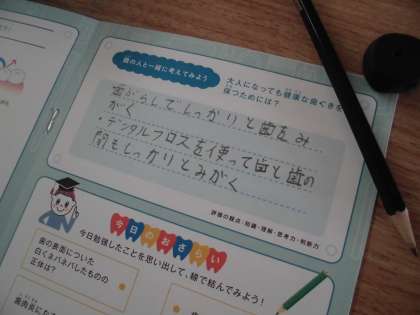 歯の人と一緒に考えてみよう
大人になっても健康な歯ぐきを
保つためには？
歯ぶらしでしっかりと歯をみ
がく
・デンタルフロスを使って歯と歯の
間もしっかりとみがく
評価の観点：知識・理解・思考力・判断力
今日のおさらい
今日勉強したことを思い出して、線で結んでみよう！
歯の表面についた
白くネバネバしたものの
正体は？